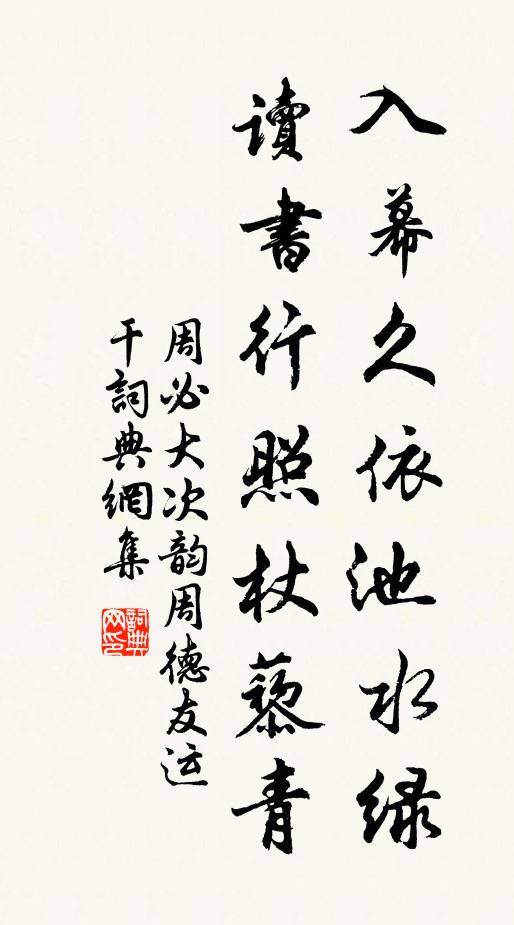 入幕久依池水緑
讀書行照杖藜青
周必大次韵周德友运
干詞典網集
詞典网印